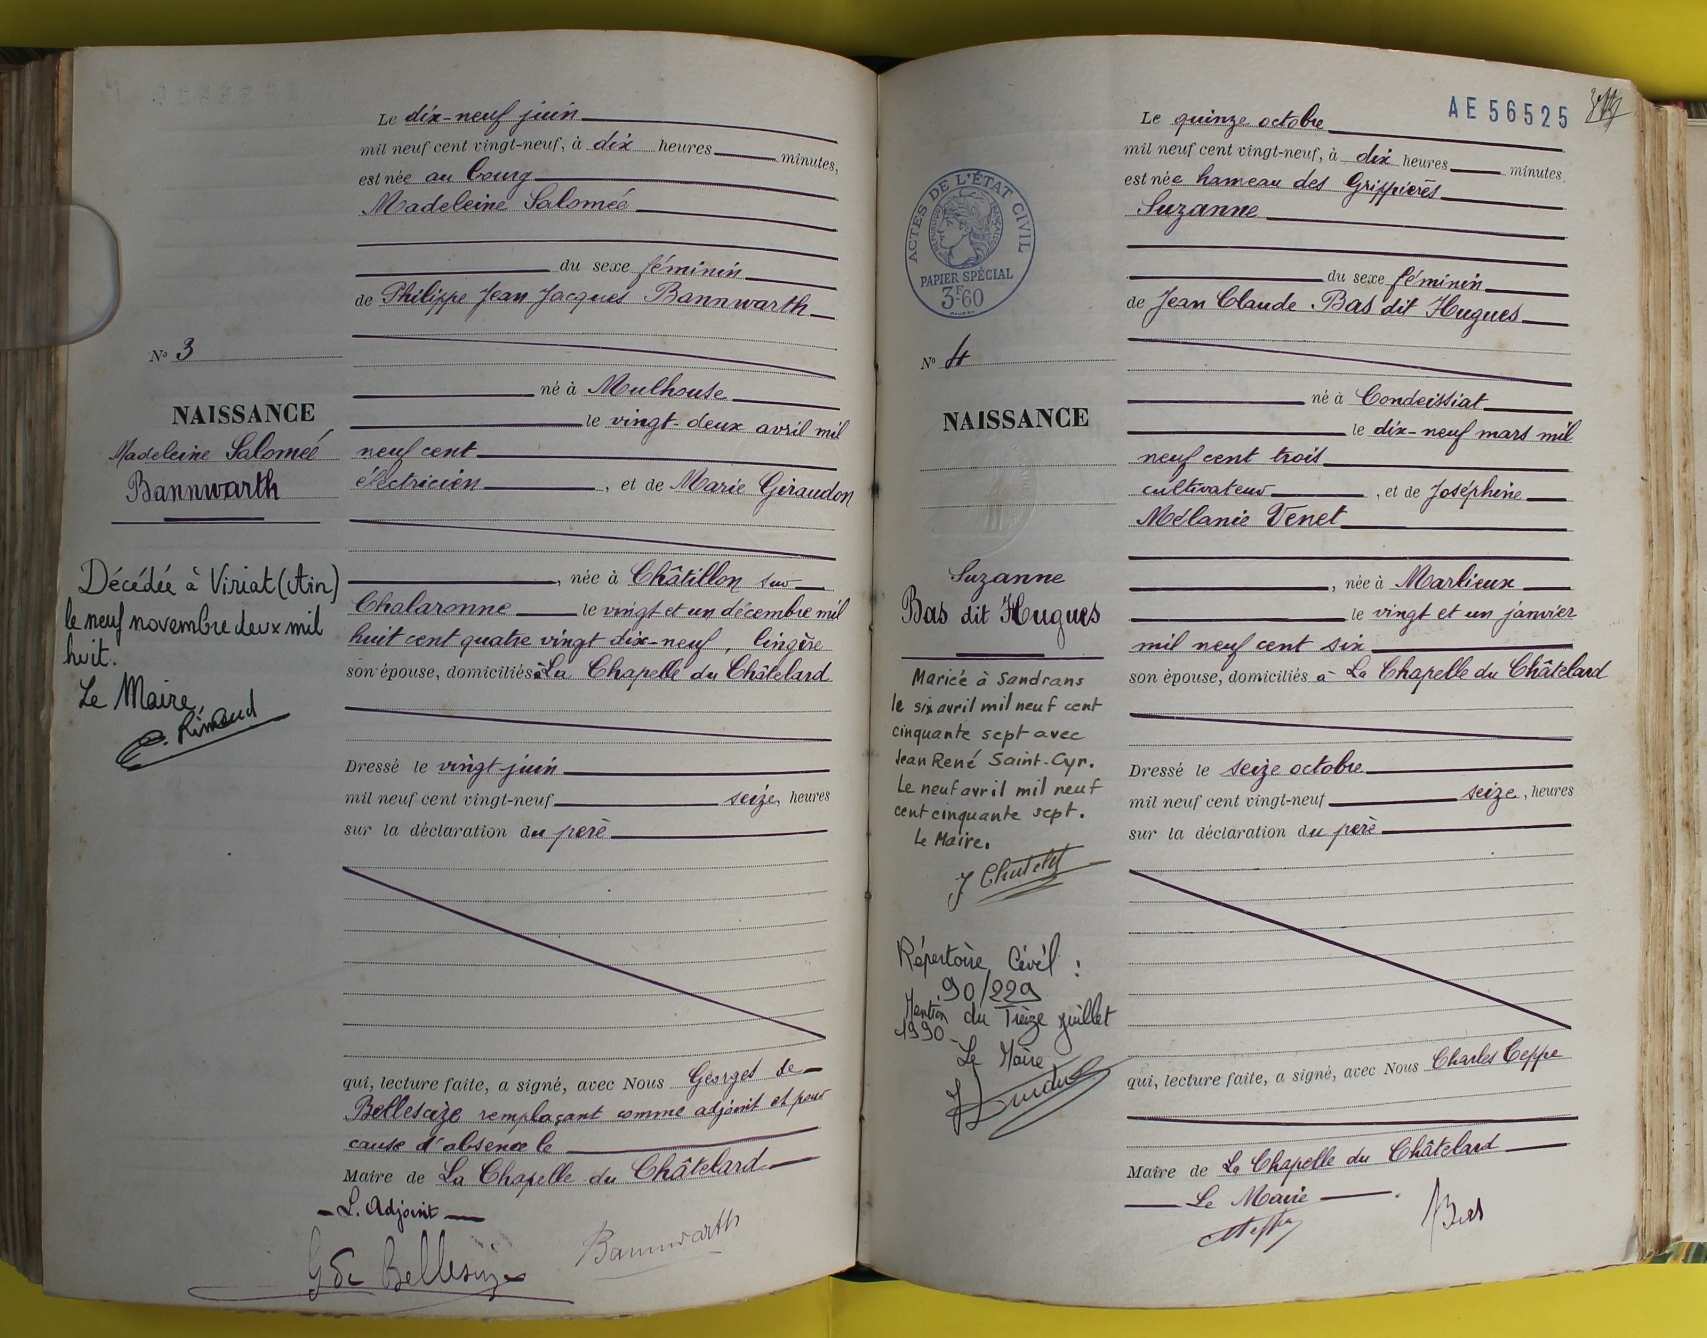 Le dix-neuf juin
mil neuf cent vingt-neuf, à dix heures minutes,
est née au bourg
Madeleine Salomée
du sexe féminin
de Philippe Jean Jacques Bannwarth
né à Mulhouse
le vingt-deux avril mil
neuf cent
électricien, et de Marie Giraudon
, née à Châtillon sur
Chalaronne le vingt et un décembre mil
huit cent quatre vingt dix-neuf, lingère
son épouse, domiciliés à La Chapelle du Châtelard
Dressé le vingt juin
mil neuf cent vingt-neuf seize, heures
sur la déclaration du père
qui, lecture faite, a signé, avec Nous Georges de
Bellescize remplaçant comme adjoint et pour
cause d'absence le
Maire de La Chapelle du Châtelard
L. Adjoint
G de Bellescize
Bannwarth
N° 3
NAISSANCE
Madeleine Salomée
Bannwarth
Décédée à Viriat (Ain)
le neuf novembre deux mil
huit.
Le Maire
Rimaud
AE56525
Le quinze octobre
mil neuf cent vingt-neuf, à dix heures minutes.
est née hameau des Grippières
Suzanne
du sexe féminin
de Jean Claude Bas dit Hugues
né à Condeissiat
le dix-neuf mars mil
neuf cent trois
cultivateur, et de Joséphine
Mélanie Venet
, née à Marlieux
le vingt et un janvier
mil neuf cent six
son épouse, domiciliés à La Chapelle du Châtelard
Dressé le seize octobre
mil neuf cent vingt-neuf seize, heures
sur la déclaration du père
qui, lecture faite, a signé, avec Nous Charles Ceppe
Maire de La Chapelle du Châtelard
Le Maire
Bas
ACTES DE L'ÉTAT CIVIL
RÉPUBLIQUE FRANÇAISE
PAPIER SPÉCIAL
3F60
N° 4
NAISSANCE
Suzanne
Bas dit Hugues
Mariée à Sandrans
le six avril mil neuf cent
cinquante sept avec
Jean René Saint-Cyr.
Le neuf avril mil neuf
cent cinquante sept.
Le Maire.
Répertoire Civil :
90/229
Mention du Treize juillet
1990
Le Maire